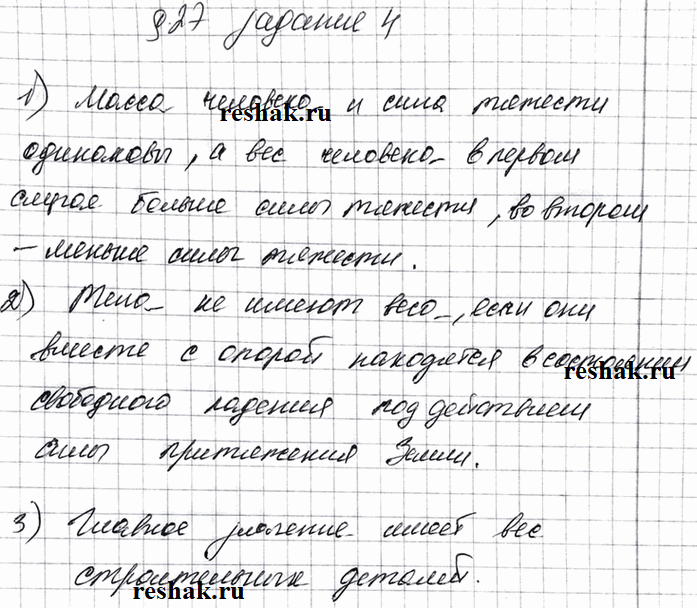 §27 задание 4
1) Масса человека и сила тяжести
reshak.ru
одинаковы, а вес человека в первом
случае больше силы тяжести, во втором
– меньше силы тяжести.
2) Тела не имеют веса, если они
вместе с опорой находятся в состоянии
reshak.ru
свободного падения под действием
силы притяжения Земли.
3) Главное значение имеет вес
строительных деталей.
reshak.ru